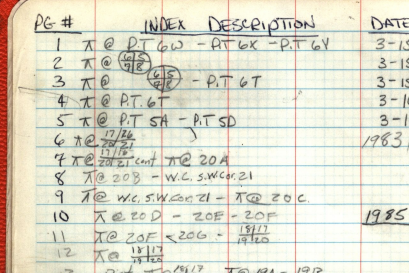 PG # INDEX DESCRIPTION DATE
1 π @ P.T 6W - P.T 6X - P.T 6Y 3-1
2 π @ 6|5 7|8 3-1
3 π @ 6|5 7|8 - P.T 6T 3-1
4 π @ P.T. 6T 3-1
5 π @ P.T 5A - P.T 5D 3-1
6 π @ 17/26 20/21 1983
7 π @ 17/16 20/21 cont π @ 20A
8 π @ 20B - W.C. S.W.Cor. 21
9 π @ W.C. S.W.Cor. 21 - π @ 20C.
10 π @ 20D - 20E - 20F 1985
11 π @ 20F - 20G - 18|17 19|20
12 π @ 18|17 19|20